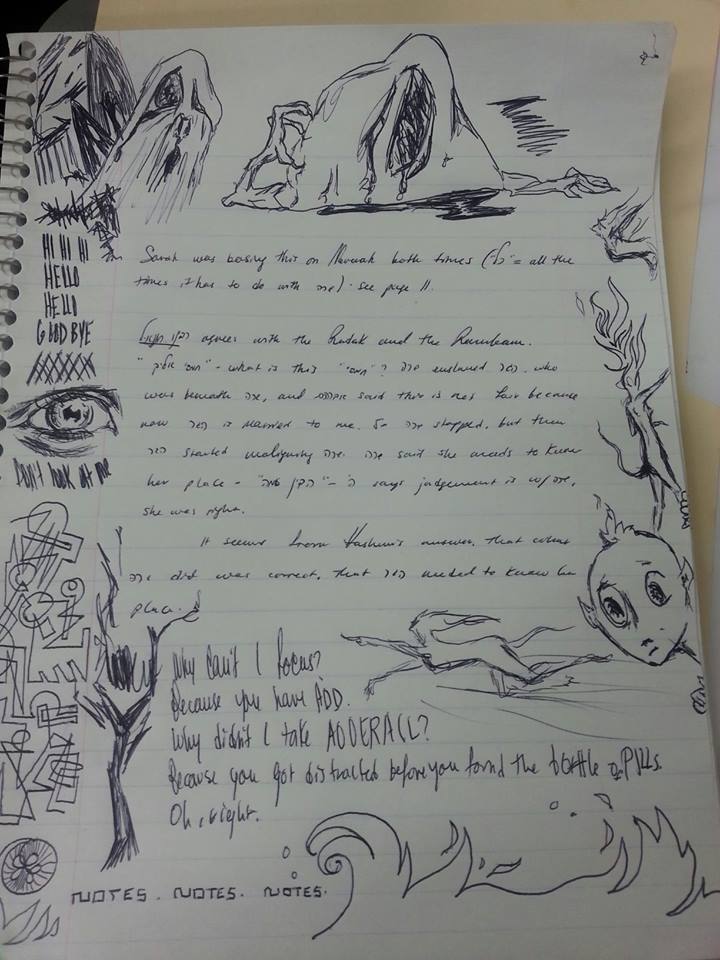 HI HI HI
HELLO
HELLO
GOODBYE
Don't look at me
Sarah was basing this on both times = all the
times it has to do with see page 11.
agrees with the Radak and the Rambam.
what is this ? שרה enslaved הגר, who
was beneath שרה, and said this is not fair because
now הגר is married to me. So שרה stopped, but then
הגר started maligning שרה. שרה said she needs to know
her place - says judgement is
she was right.
It seems from Hashem's answer, that what
שרה did was correct, that הגר needed to know her
place.
Why can't I focus?
Because you have ADD.
Why didn't I take ADDERALL?
Because you got distracted before you found the bottle of PILLS.
Oh, right.
NOTES. NOTES. NOTES.